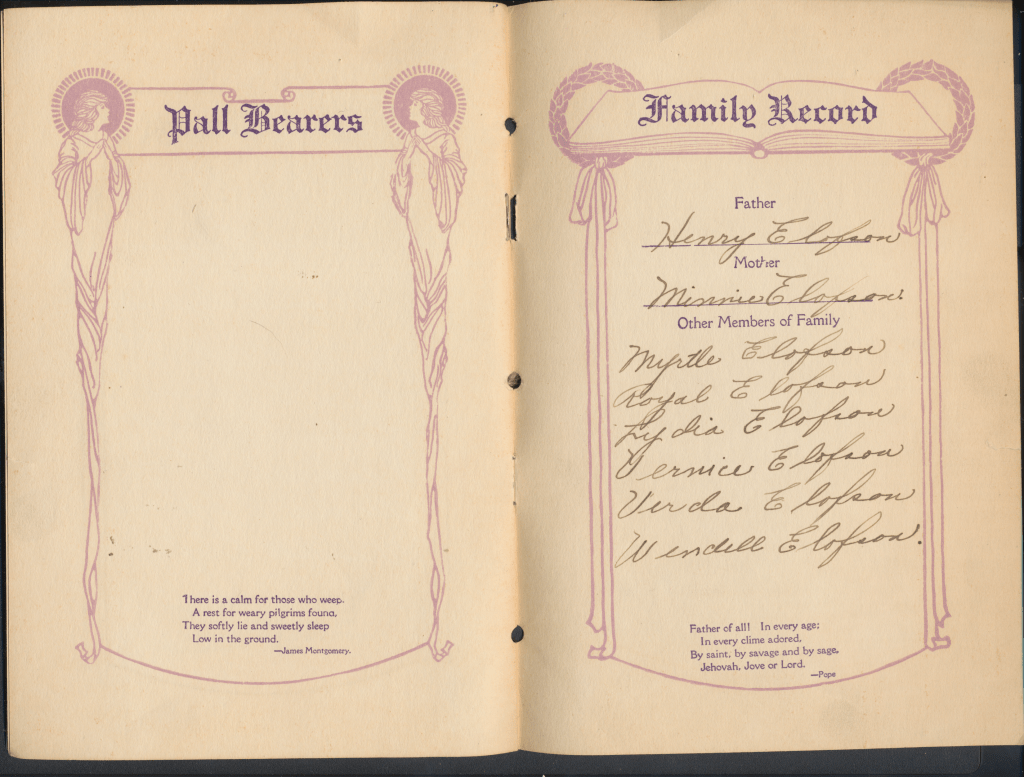 Pall Bearers
There is a calm for those who weep.
A rest for weary pilgrims found,
They softly lie and sweetly sleep
Low in the ground.
—James Montgomery.
Family Record
Father
Henry Elofson
Mother
Minnie Elofson.
Other Members of Family
Myrtle Elofson
Royal Elofson
Lydia Elofson
Vernice Elofson
Verda Elofson
Wendell Elofson.
Father of all! In every age;
In every clime adored,
By saint, by savage and by sage,
Jehovah, Jove or Lord.
—Pope